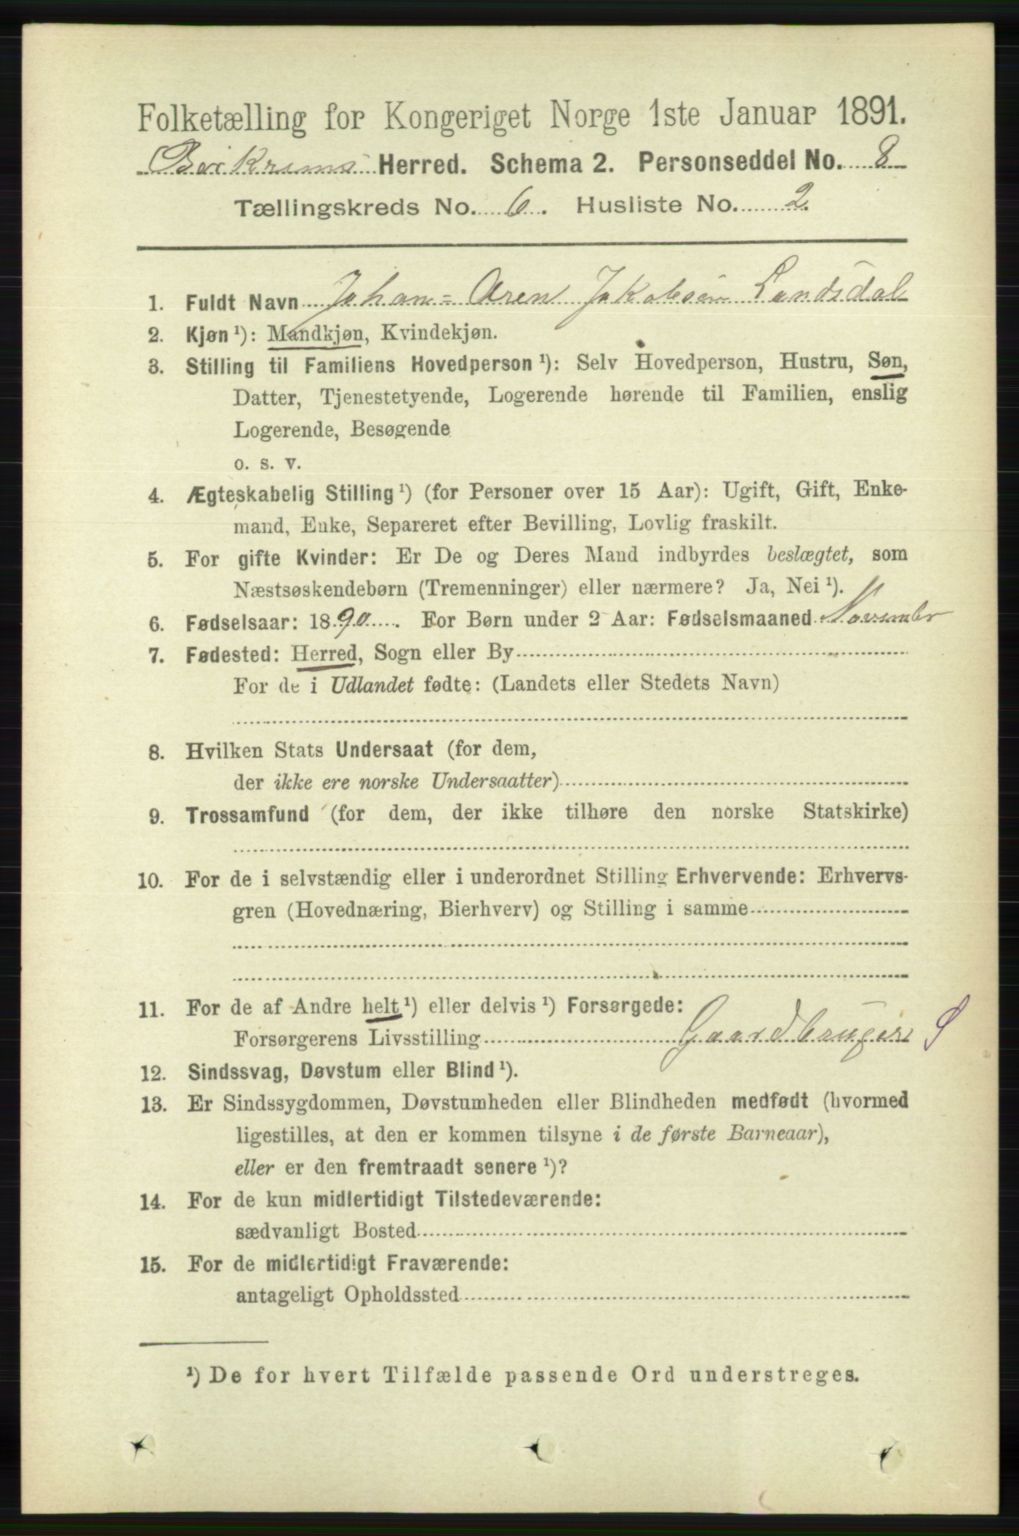 Folketælling for Kongeriget Norge 1ste Januar 1891.
Birkrems Herred. Schema 2. Personseddel No. 8
Tællingskreds No. 6. Husliste No. 2.
1. Fuldt Navn Johan = Aren Jakobsen Landsdal
2. Kjøn ¹): Mandkjøn, Kvindekjøn.
3. Stilling til Familiens Hovedperson ¹): Selv Hovedperson, Hustru, Søn,
Datter, Tjenestetyende, Logerende hørende til Familien, enslig
Logerende, Besøgende
o. s. v.
4. Ægteskabelig Stilling ¹) (for Personer over 15 Aar): Ugift, Gift, Enke-
mand, Enke, Separeret efter Bevilling, Lovlig fraskilt.
5. For gifte Kvinder: Er De og Deres Mand indbyrdes beslægtet, som
Næstsøskendebørn (Tremenninger) eller nærmere? Ja, Nei ¹).
6. Fødselsaar: 1890. For Børn under 2 Aar: Fødselsmaaned November
7. Fødested: Herred, Sogn eller By
For de i Udlandet fødte: (Landets eller Stedets Navn)
8. Hvilken Stats Undersaat (for dem,
der ikke ere norske Undersaatter)
9. Trossamfund (for dem, der ikke tilhøre den norske Statskirke)
10. For de i selvstændig eller i underordnet Stilling Erhvervende: Erhvervs-
gren (Hovednæring, Bierhverv) og Stilling i samme
11. For de af Andre helt ¹) eller delvis ¹) Forsørgede:
Forsørgerens Livsstilling Gaardbruger S
12. Sindssvag, Døvstum eller Blind ¹).
13. Er Sindssygdommen, Døvstumheden eller Blindheden medfødt (hvormed
ligestilles, at den er kommen tilsyne i de første Barneaar),
eller er den fremtraadt senere ¹)?
14. For de kun midlertidigt Tilstedeværende:
sædvanligt Bosted
15. For de midlertidigt Fraværende:
antageligt Opholdssted
¹) De for hvert Tilfælde passende Ord understreges.